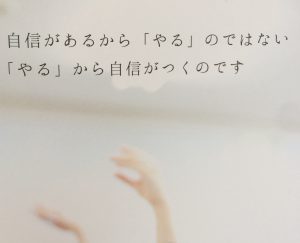 自信があるから「やる」のではない
「やる」から自信がつくのです